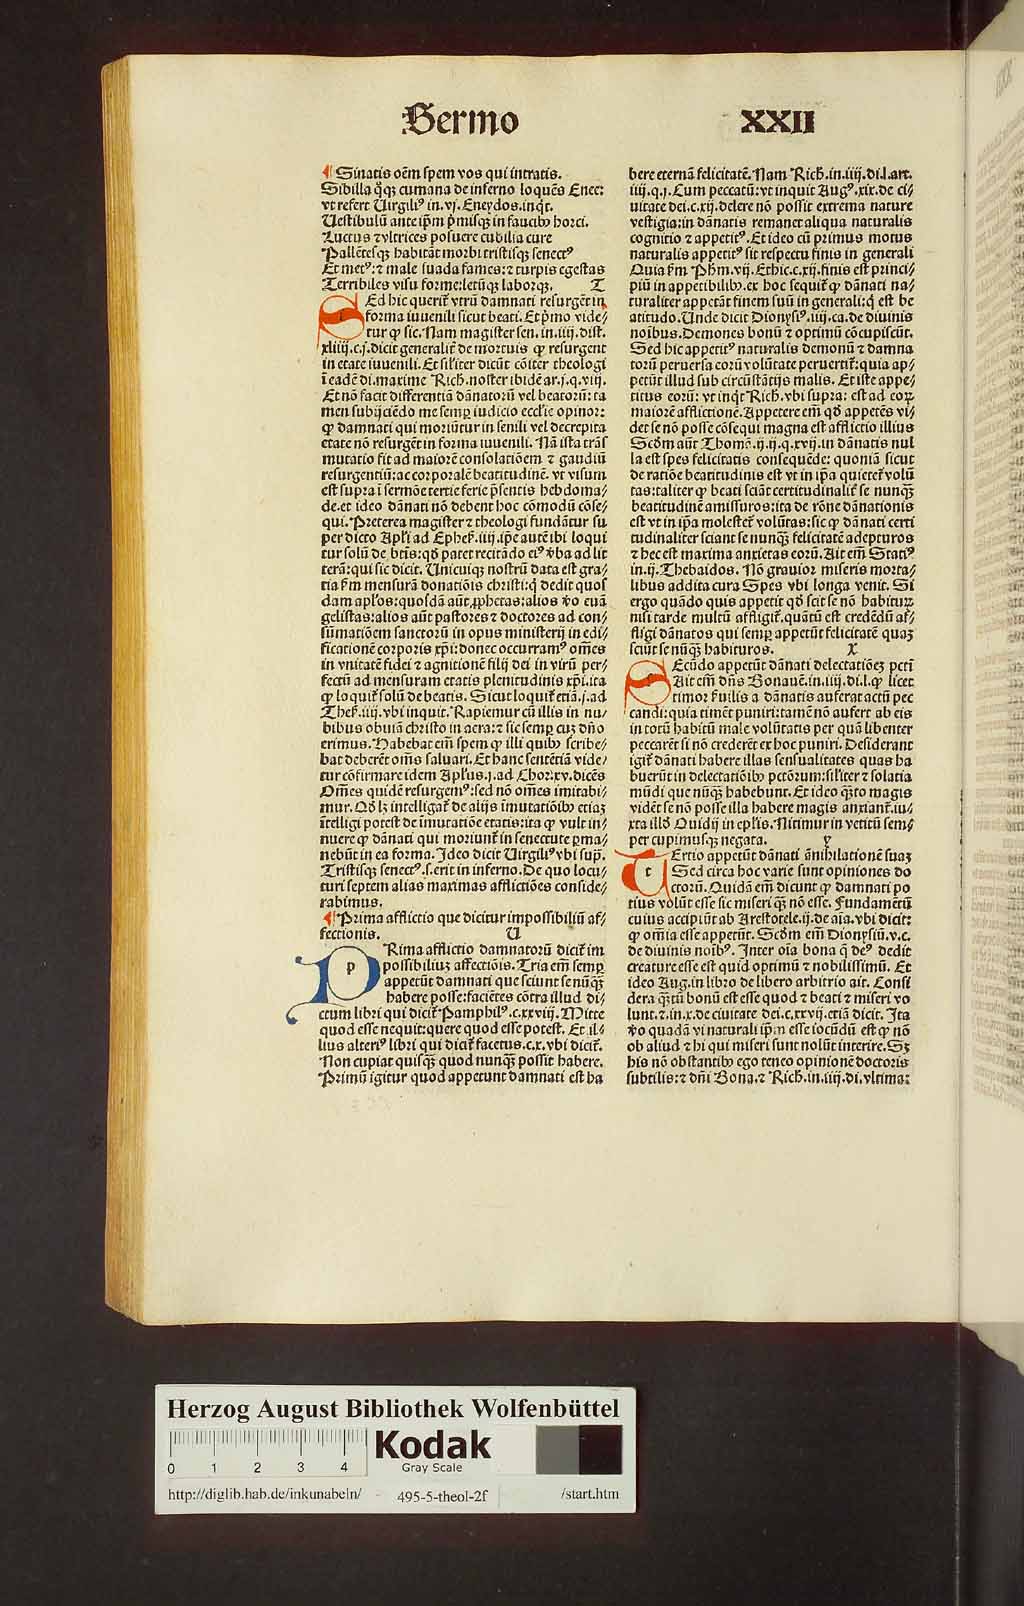 Sermo XXII
¶ Sinatis oēm spem vos qui intratis.
Sibilla q̄q; cumana de inferno loquēs Enee:
vt refert Uirgiliꝰ in.vj. Eneydos.inq̇t.
Uestibulū ante ip̄m p̄misq; in faucibꝰ horci.
Luctus ⁊ vltrices posuere cubilia cure
Pallētesq; habitāt morbi tristisq; senectꝰ
Et metꝰ: ⁊ male suada fames: ⁊ turpis egestas
Terribiles visu forme: letūq; laborq;. T
SEd hic queriť vtrū damnati resurgēt in
forma iuuenili sicut beati. Et p̄mo vide/
tur ꝙ sic. Nam magister sen. in.iiij. dist.
xliiij.c.j. dicit generaliť de mortuis ꝙ resurgent
in etate iuuenili. Et siľiter dicūt cōiter theologi
ī eadē di. maxime Rich. noster ibidē ar.j.q.viij.
Et nō facit differentiā dānatorū vel beatorū: ta
men subijciēdo me semꝑ iudicio eccľie opinor:
ꝙ damnati qui moriūtur in senili vel decrepita
etate nō resurgēt in forma iuuenili. Nā ista trās
mutatio fit ad maiorē consolatiōem ⁊ gaudiū
resurgentiū: ac corporalē beatitudinē. vt visum
est supra ī sermōe tertie ferie p̄sentis hebdoma/
de. et ideo dānati nō debent hoc cōmodū cōse/
qui. Preterea magister ⁊ theologi fundātur su
per dicto Apľi ad Epheẜ.iiij. ip̄e autē ibi loqui
tur solū de bt̄is: qđ patet recitādo eiꝰ v̄ba ad lit
terā: qui sic dicit. Unicuiq; nostrū data est gra/
tia ẜm mensurā donatiōis christi: q̇ dedit quos
dam apľos: quosdā aūt ꝓphetas: alios v̄o euā
gelistas: alios aūt pastores ⁊ doctores ad con/
sūmatiōem sanctorū in opus ministerij in edi/
ficationē corporis xp̄i: donec occurramꝰ om̄es
in vnitatē fidei ⁊ agnitionē filij dei in virū per/
fectū ad mensuram etatis plenitudinis xp̄i. ita
ꝙ loquiť solū de beatis. Sicut loquiť etiā.j. ad
Theẜ.iiij. vbi inquit. Rapiemur cū illis in nu/
bibus obuiā christo in aera: ⁊ sic semꝑ cuꝫ dn̄o
erimus. Habebat em̄ spem ꝙ illi quibꝰ scribe/
bat deberēt om̄s saluari. Et hanc sententiā vide/
tur cōfirmare idem Apľus.j. ad Chor.xv. dicēs
Om̄es quidē resurgemꝰ: sed nō om̄es imītabi/
mur. Qđ lꝫ intelligať de alijs īmutatiōibꝰ etiaꝫ
ītelligi potest de īmutatiōe etatis: ita ꝙ vult in/
nuere ꝙ dānati qui moriunť in senectute ꝑma/
nebūt in ea forma. Ideo dicit Uirgiliꝰ vbi sup̄.
Tristisq; senectꝰ. s. erit in inferno. De quo locu/
turi septem alias maximas afflictiōes conside/
rabimus.
¶ Prima afflictio que dicitur impossibiliū af/
fectionis. U
PRima afflictio damnatorū diciť im
possibiliuꝫ affectiōis. Tria em̄ semꝑ
appetūt damnati que sciunt se nūq̄ꝫ
habere posse: faciētes cōtra illud di/
ctum libri qui diciť Pamphilꝰ.c.xxviij. Mitte
quod esse nequit: quere quod esse potest. Et il/
lius alteriꝰ libri qui diciť facetus.c.x. vbi diciť.
Non cupiat quisq̄ꝫ quod nunq̄ꝫ possit habere.
Primū igitur quod appetunt damnati est ha
bere eternā felicitatē. Nam Rich. in.iiij. di.l.art.
iiij.q.j. Cum peccatū: vt inquit Augꝰ.xix. de ci/
uitate dei.c.xij. delere nō possit extrema nature
vestigia: in dānatis remanet aliqua naturalis
cognitio ⁊ appetitꝰ. Et ideo cū primus motus
naturalis appetitꝰ sit respectu finis in generali
Quia ẜm Phm̄.vij. Ethic.c.xij. finis est princi/
piū in appetibilibꝰ. ex hoc sequiť ꝙ dānati na/
turaliter appetāt finem suū in generali: q̇ est be
atitudo. Unde dicit Dionysiꝰ.iiij. ca. de diuinis
noībus. Demones bonū ⁊ optimū cōcupiscūt.
Sed hic appetitꝰ naturalis demonū ⁊ damna
torū peruersa eorū volūtate peruertiť: quia ap/
petūt illud sub circūstātijs malis. Et iste appe/
titus eorū: vt inq̇t Rich. vbi supra: est ad eoꝝ
maiorē afflictionē. Appetere em̄ qđ appetēs vi/
det se nō posse cōsequi magna est afflictio illius
Scđm aūt Thomā.ij.ij.q.xvij. in dānatis nul
la est spes felicitatis consequēde: quoniā sicut
de ratiōe beatitudinis est vt in ip̄a quieteť volū
tas: taliter ꝙ beati sciāt certitudinaliť se nunq̄ꝫ
beatitudinē amissuros: ita de rōne dānationis
est vt in ip̄a molesteť volūtas: sic ꝙ dānati certi
tudinaliter sciant se nunq̄ꝫ felicitatē adepturos
⁊ hec est maxima anxietas eorū. Ait em̄ Statiꝰ
in.ij. Thebaidos. Nō grauior miseris morta/
libus addita cura Spes vbi longa venit. Si
ergo quādo quis appetit qđ scit se nō habituꝝ
nisi tarde multū affligiť. quātū est credēdū af/
fligi dānatos qui semꝑ appetūt felicitatē quaꝫ
sciūt se nūq̄ꝫ habituros. X
SEcūdo appetūt dānati delectatiōeꝫ petī
Ait em̄ dn̄s Bonauē. in.iiij. di.l. ꝙ licet
timor ẜuilis a dānatis auferat actū pec
candi: quia timēt puniri: tamē nō aufert ab eis
in totū habitū male volūtatis per quā libenter
peccarēt si nō crederēt ex hoc puniri. Desiderant
igiť dānati habere illas sensualitates quas ha
buerūt in delectatiōibꝰ pctōrum: siľiter ⁊ solatia
mūdi que nūq̄ꝫ habebunt. Et ideo q̄ꝫto magis
vidēt se nō posse illa habere magis anxianť. iu/
xta illđ Ouidij in epľis. Nitimur in vetitū sem/
per cupimusq; negata. y
TErtio appetūt dānati ānihilationē suaꝫ
Sed circa hoc varie sunt opiniones do
ctorū. Quidā em̄ dicunt ꝙ damnati po
tius volūt esse sic miseri q̄ꝫ nō esse. Fundamētū
cuius accipiūt ab Arestotele.ij. de aīa. vbi dicit:
ꝙ om̄ia esse appetūt. Scđm em̄ Dionysiū.v.c.
de diuinis noībꝰ. Inter oīa bona q̄ deꝰ dedit
creature esse est quid optimū ⁊ nobilissimū. Et
ideo Aug. in libro de libero arbitrio ait. Consi
dera q̄ꝫtū bonū est esse quod ⁊ beati ⁊ miseri vo
lunt. ⁊ in.x. de ciuitate dei.c.xxvij. etiā dicit. Ita
v̄o quadā vi naturali ip̄m esse iocūdū est ꝙ nō
ob aliud ⁊ hi qui miseri sunt nolūt interire. Sꝫ
his nō obstantibꝰ ego teneo opinionē doctoris
subtilis: ⁊ dn̄i Bona. ⁊ Rich. in.iiij. di. vltima:
Herzog August Bibliothek Wolfenbüttel
0 1 2 3 4
Kodak
Gray Scale
http://diglib.hab.de/inkunabeln/ - 495-5-theol-2f /start.htm